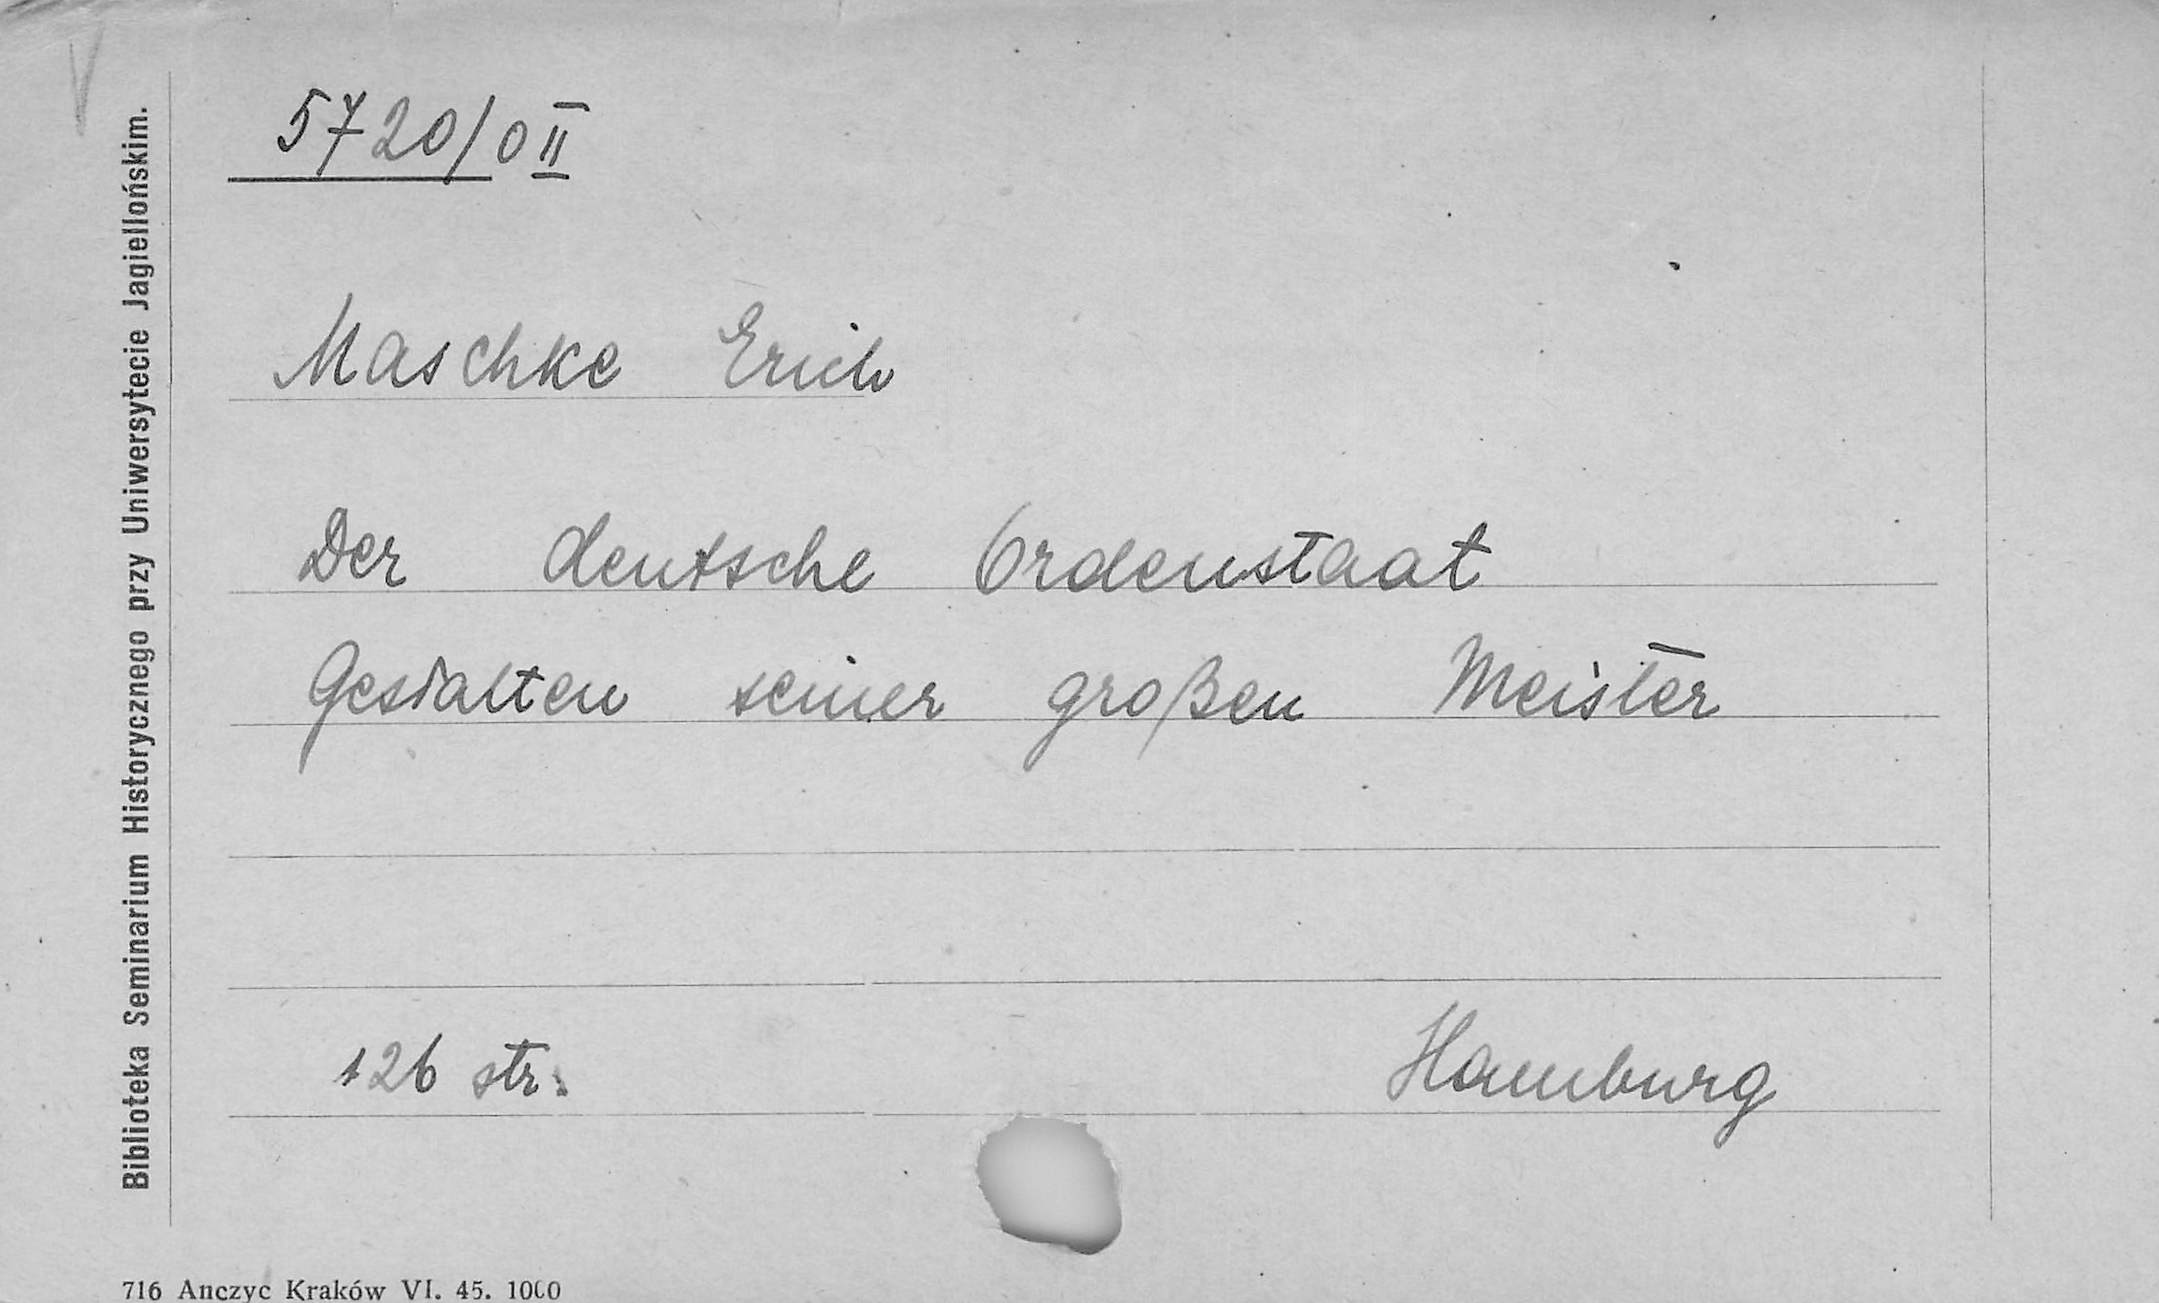 5720/0 II
Maschke Erich
Der deutsche Ordenstaat
Gestalten seiner großen Meister
126 str.
Hamburg
Biblioteka Seminarium Historycznego przy Uniwersytecie Jagiellońskim.
716 Anczyc Kraków VI. 45. 1000